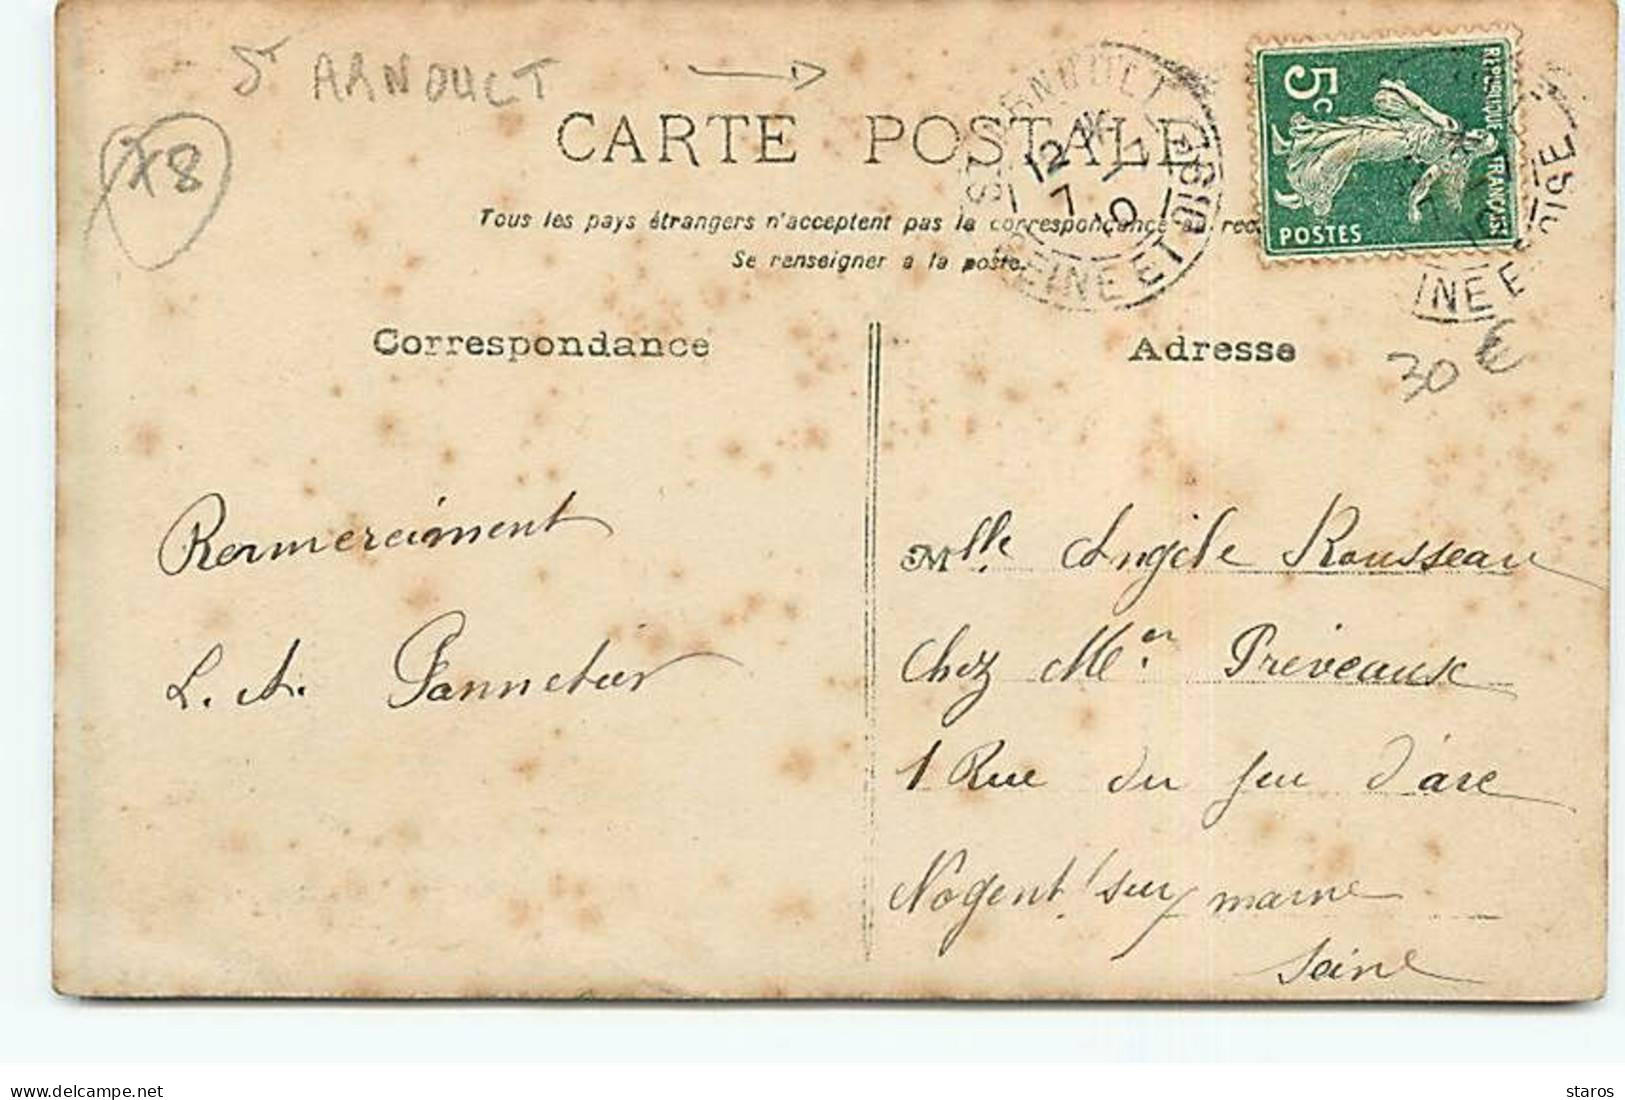 St ARNOULT
X8
CARTE POSTALE
Tous les pays étrangers n'acceptent pas la correspondance au rec
Se renseigner a la poste.
ST ARNOULT
12
7 - 7
10
SEINE ET OISE
5c
REPUBLIQUE FRANÇAISE
POSTES
INE E OISE
30 €
Correspondance
Remerciment
L. A. Pannetier
Adresse
Mlle. Angèle Rousseau
Chez Mer. Préveaux
1 Rue du Jeu d'arc
Nogent sur marne
Seine
delcampe.net
staros